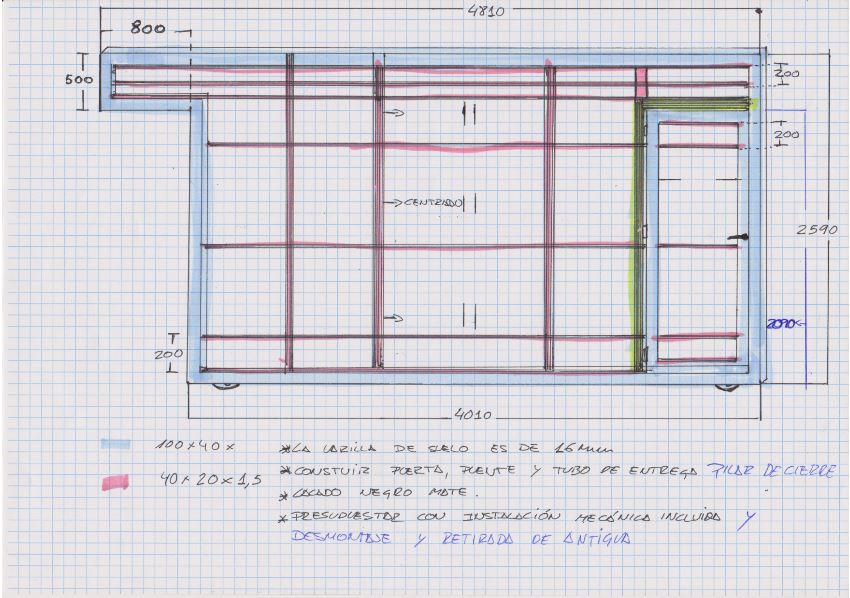 4810
800
500
200
200
→CENTRADO
2590
2090
200
4010
100×40×
*LA VARILLA DE SUELO ES DE 16mm
*CONSTUIR PUERTA, PUENTE Y TUBO DE ENTREGA PILAR DE CIERRE
40×20×1,5
*LACADO NEGRO MATE.
*PRESUPUESTAR CON INSTALACIÓN MECÁNICA INCLUIDA Y
DESMONTAJE Y RETIRADA DE ANTIGUA